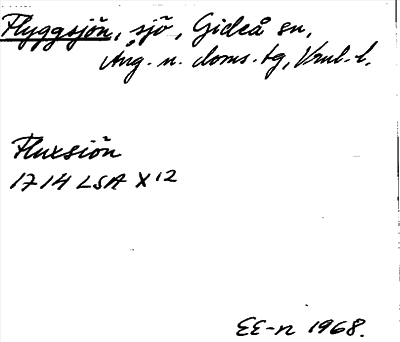 Flyggsjön, sjö, Gideå sn,
Ång. n. doms. tg, Vnul. l.
Fluxsiön
1714 LSA X 12
EE-n 1968.